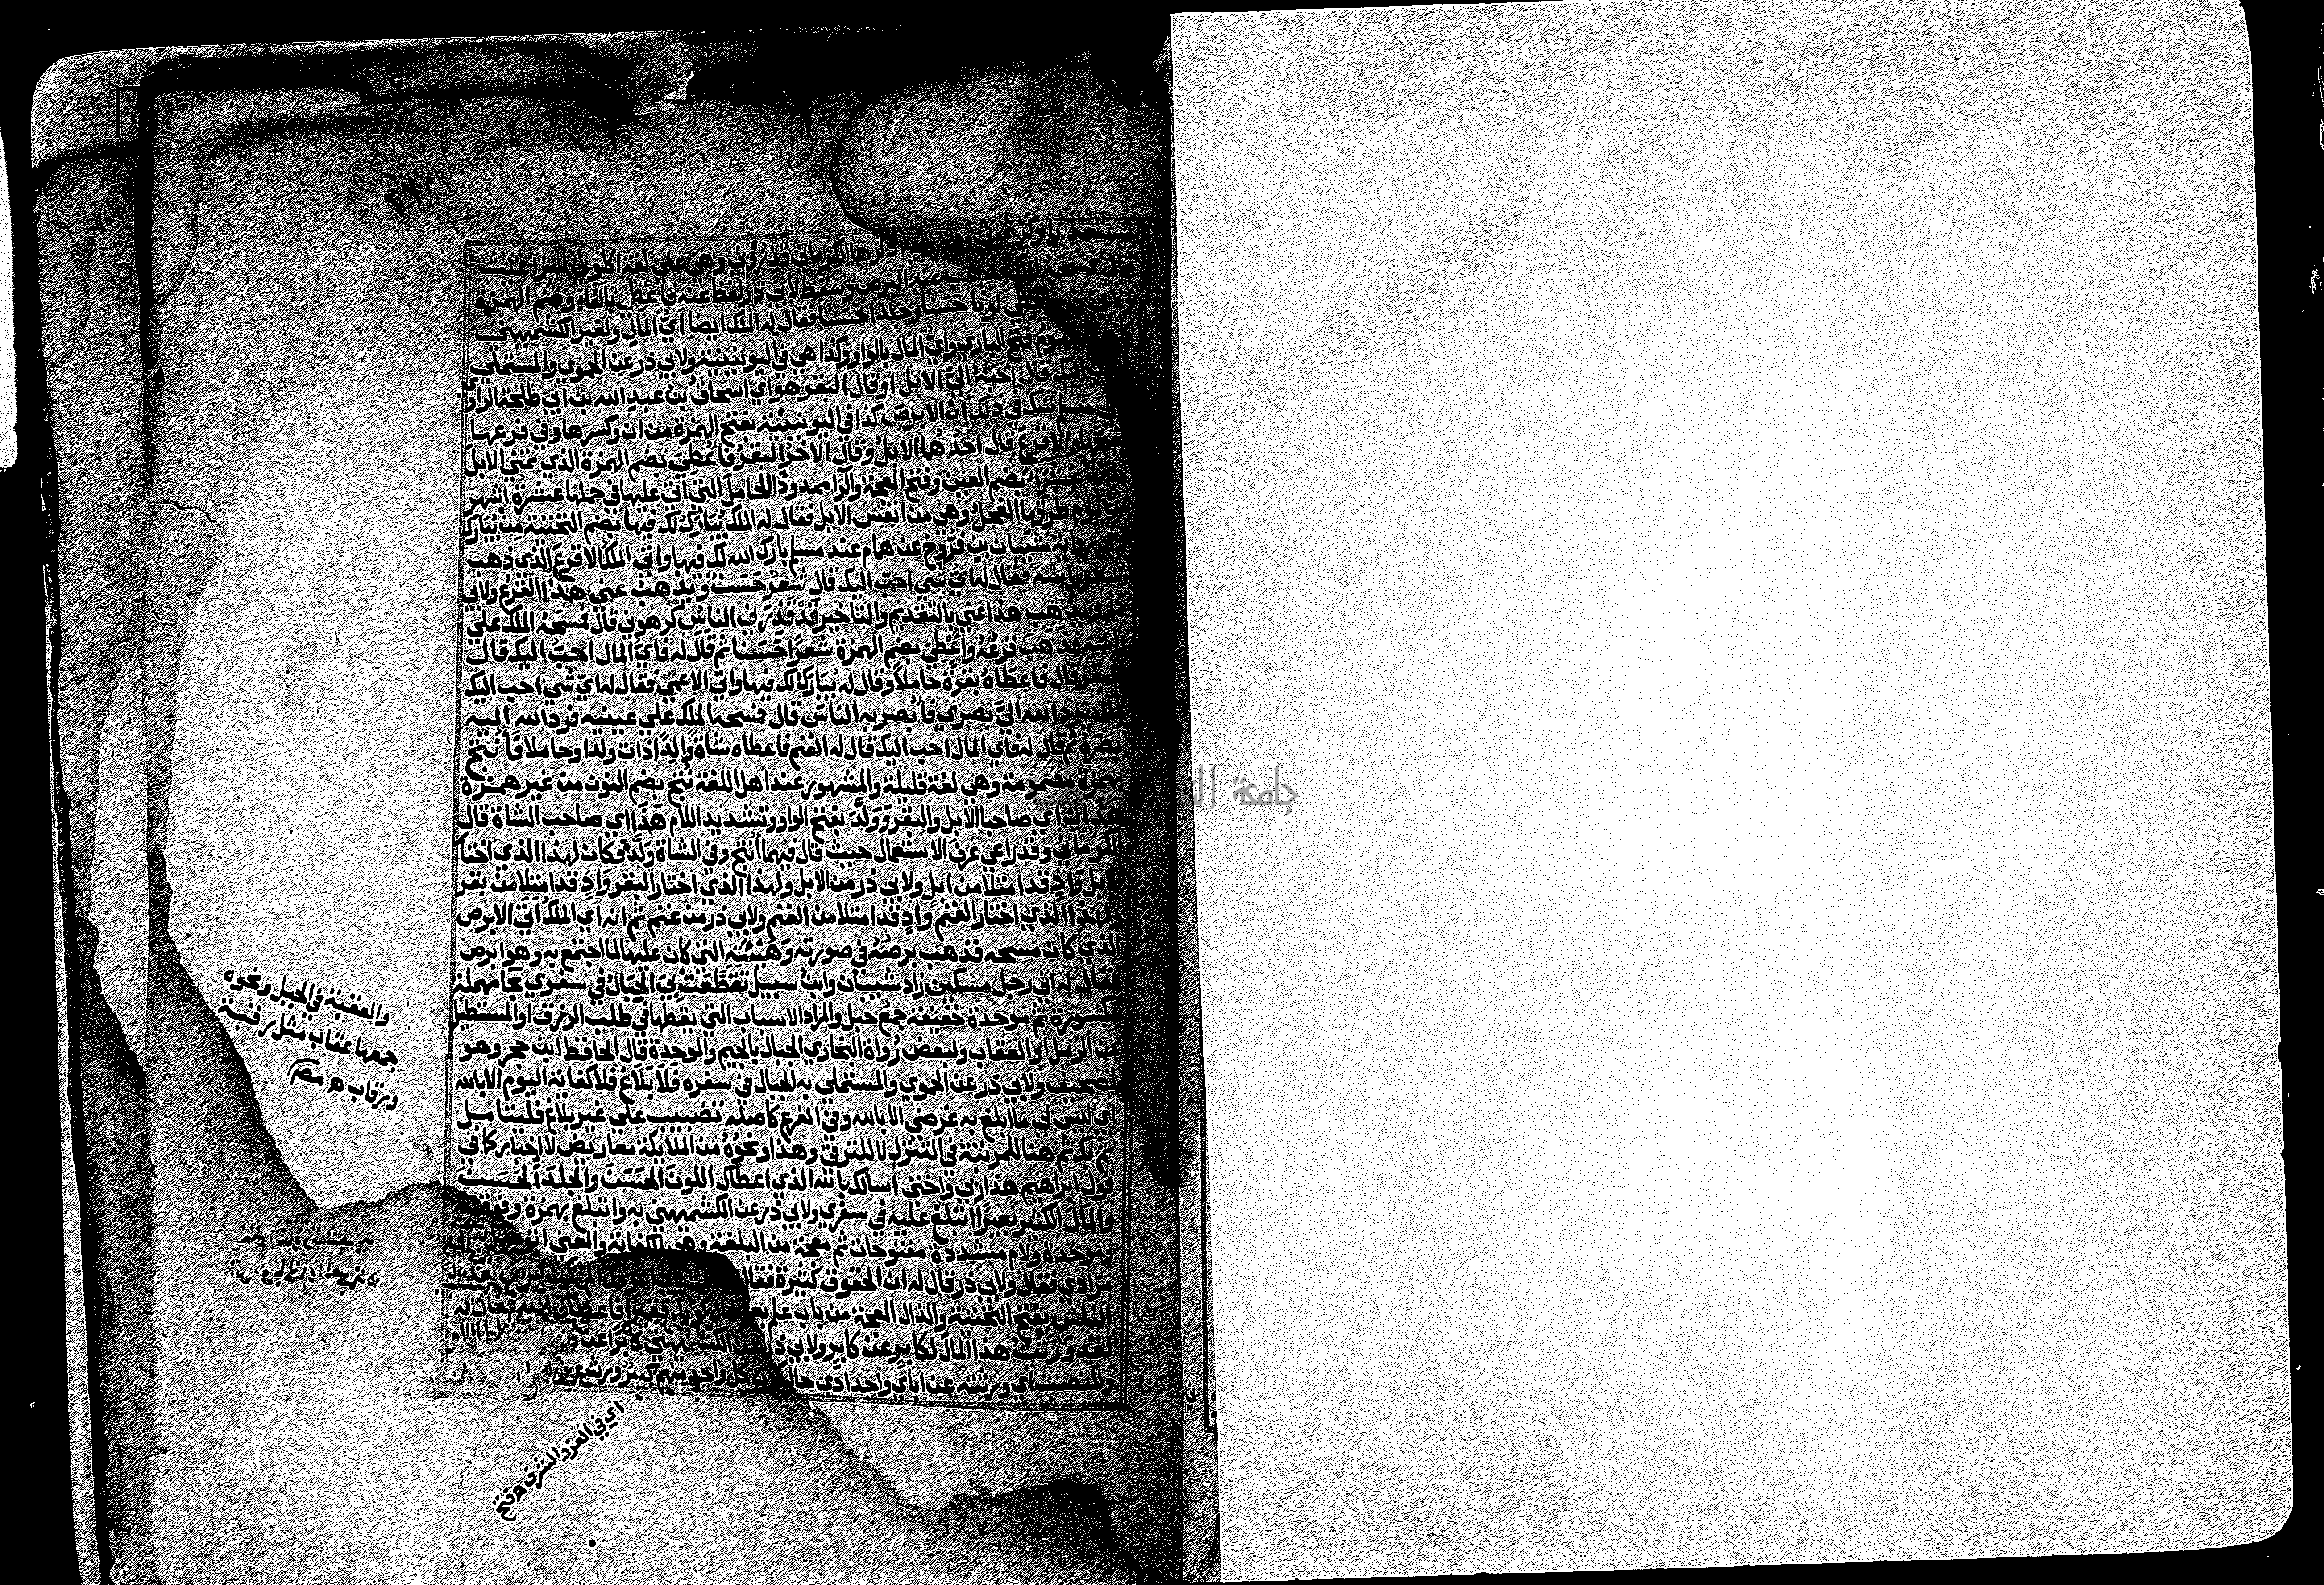 ٢٦٠
وفي رواية ذكرها الكرماني قذروني وهي على لغة اكلوني البراغيث
قال فمسحه الملك فذهب عنه البرص وسقط لابي ذر لفظ عنه فاعطي بالفاء وضم الهمزة
ولابي ذر واعطي لونا حسنا وجلدا حسنا فقال له الملك ايضا اي المال ولغير الكشميهني
فتح الباري واي المال بالواو وكذا هي في اليونينية ولابي ذر عن الحموي والمستملي
اليك قال احبه الي الابل او قال البقر هو اي اسحاق بن عبد الله بن ابي طلحة الراوي
مسلم شك في ذلك ان الابرص كذا في اليونينية بفتح الهمزة من ان وكسرها وفي فرعها
بفتحها والاقرع قال احدهما الابل وقال الاخر البقر فاعطي بضم الهمزة الذي تمنى الابل
ناقة عشراء بضم العين وفتح المعجمة والراء ممدودا الحامل التي اتى عليها في حملها عشرة اشهر
من يوم طرقها الفحل وهي من انفس الابل فقال له الملك يبارك لك فيها بضم التحتية من يبارك
وفي رواية شيبان بن فروخ عن همام عند مسلم بارك الله لك فيها واتى الملك الاقرع الذي ذهب
شعر راسه فقال له اي شي احب اليك قال شعر حسن ويذهب عني هذا القرع ولابي
ذر ويذهب هذا عني بالتقديم والتاخير قد قذرني الناس كرهوني قال فمسحه الملك على
راسه فذهب قرعه واعطي بضم الهمزة شعرا حسنا ثم قال له فاي المال احب اليك قال
البقر قال فاعطاه بقرة حاملا وقال له يبارك لك فيها واتى الاعمى فقال له اي شي احب اليك
قال يرد الله الي بصري فأبصر به الناس قال فمسحه الملك على عينيه فرد الله اليه
بصره ثم قال له فاي المال احب اليك قال له الغنم فاعطاه شاة والدا ذات ولد او حاملا فأنتج
بهمزة مضمومة وهي لغة قليلة والمشهور عند اهل اللغة نتج بضم النون من غير همزة
هذان اي صاحبا الابل والبقر وولد بفتح الواو وتشديد اللام هذا اي صاحب الشاة قال
الكرماني وقد راعى عرف الاستعمال حيث قال فيهما أنتج وفي الشاة ولد فكان لهذا الذي اختار
الابل واد قد امتلا من ابل ولابي ذر من الابل ولهذا الذي اختار البقر واد قد امتلا من بقر
ولهذا الذي اختار الغنم واد قد امتلا من الغنم ولابي ذر من غنم ثم انه اي الملك اتى الابرص
الذي كان مسحه فذهب برصه في صورته وهيئته التي كان عليها لما اجتمع به وهو ابرص
فقال له اني رجل مسكين زاد شيبان وابن سبيل تقطعت بي الحبال في سفري بحاء مهملة
مكسورة ثم موحدة خفيفة جمع حبل والمراد الاسباب التي يقطعها في طلب الرزق او المستطيل
من الرمل او العقاب ولبعض رواة البخاري الجبال بالجيم والموحدة قال الحافظ ابن حجر وهو
تصحيف ولابي ذر عن الحموي والمستملي به الحبال في سفره فلا بلاغ فلا كفاية اليوم الا بالله
اي ليس لي ما ابلغ به غرضي الا بالله وفي الفرع كاصله تضبيب على غير بلاغ فليتامل
ثم بك ثم هنا للمرتبة في التنزل لا للترقي وهذا ونحوه من الملايكة معاريض لا اخبار كما في
قول ابراهيم هذا ربي واختي اسالك بالله الذي اعطاك اللون الحسن والجلد الحسن
والمال الكثير بعيرا اتبلغ عليه في سفري ولابي ذر عن الكشميهني به واتبلغ بهمزة وفوقية
وموحدة ولام مشددة مفتوحات ثم معجمة من البلغة وهي الكفاية والمعنى اتوصل به الى
مرادي فقال ولابي ذر قال له ان الحقوق كثيرة فقال له كاني اعرفك الم تكن ابرص يقذرك
الناس بفتح التحتية والذال المعجمة من باب علم يعلم حال كونك فقيرا فاعطاك الله فقال له
لقد ورثت هذا المال لكابر عن كابر ولابي ذر عن الكشميهني كابرا عن
والنصب اي ورثته عن اباي واجدادي حال كون كل واحد منهم كبيرا ورث عن
والعقبة في الجبل ونحوه
جمعها عقاب مثل رقبة
ورقاب هـ مصر
اي في العز والشرف هـ فتح
جامعة